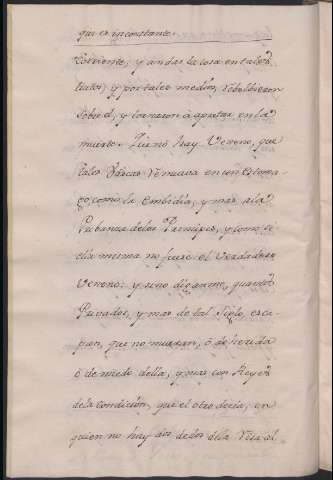 que es inconstante.
corriente, y andar la cosa en tales
tratos, y por tales medios,
sobre el, y tornaron à apretar en la
muerte. Que no hay Veneno, que
tales bascas renueva en un Estoma-
go, como la Embidia, y mas a la
Pribanza de los Principes, y como si
ella misma no fuese el verdadero
Veneno: y sino diganme, quantos
Pribados, y mas de tal Siglo, esca-
pan, que no mueran, ó de herida
ó de miedo della, y mas con Reyes
de la condicion, que el otro decia, en
quien no hay dos dedos de la Risa al